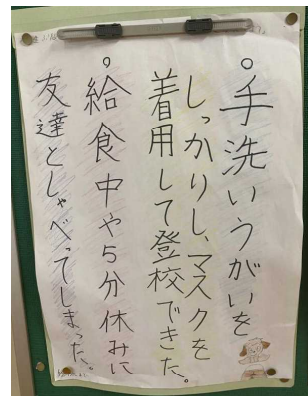 ○手洗いうがいを
しっかりし、マスクを
着用して登校できた。
○給食中や5分休みに
友達としゃべってしまった。